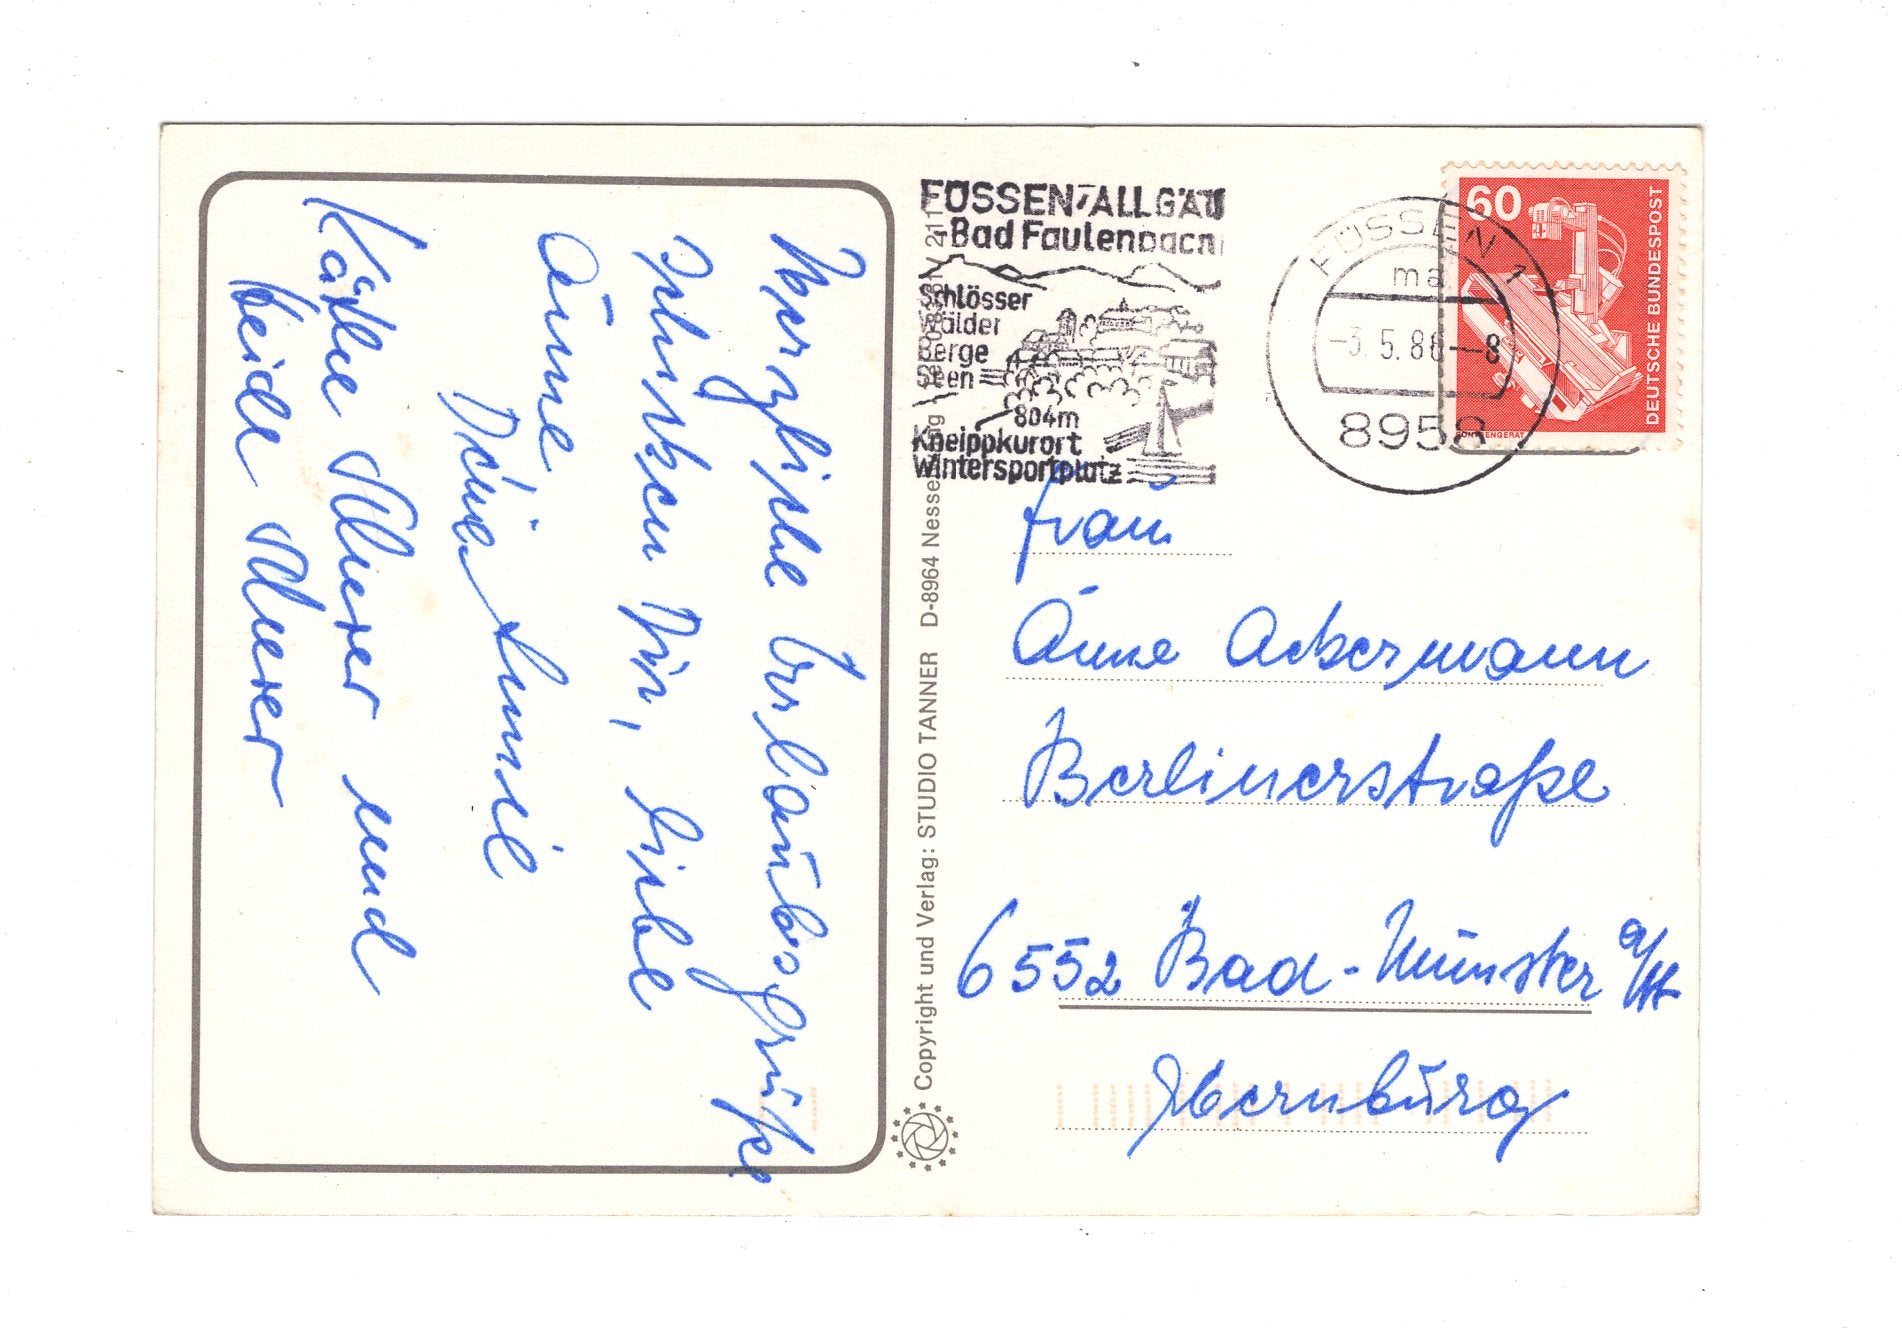 Herzliche Urlaubsgrüße
schicken Dir, liebe
Änne
Deine
Käthe
und
Heidi
FÜSSEN/ALLGÄU
-Bad Faulenbach
Schlösser
Wälder
Berge
Seen
804m
Kneippkurort
Wintersportplatz
FÜSSEN 1
ma
-3.5.88-8
8958
60
DEUTSCHE BUNDESPOST
RÖNTGENGERÄT
Copyright und Verlag: STUDIO TANNER D-8964 Nesselwang
Frau
Änne Ackermann
Berlinerstraße
6552 Bad-Münster a/St
Ebernburg